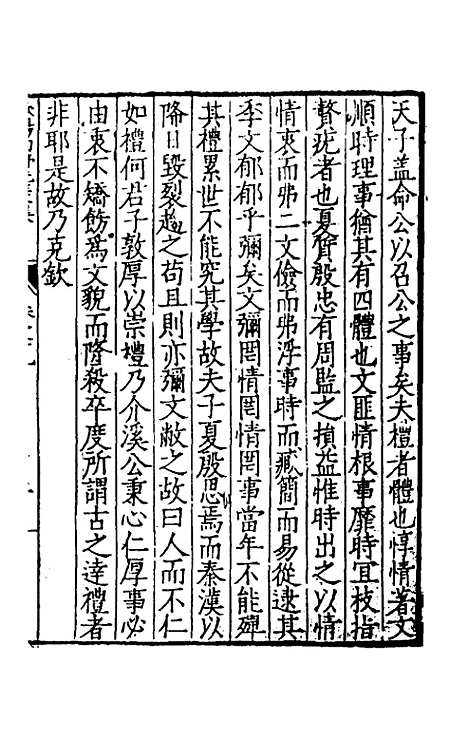 天子盖命公以召公之事矣夫禮者體也惇情著文
順時理事猶其有四體也文匪情根事靡時宜枝指
贅疣者也夏質殷忠有周監之損益惟時出之以情
情衷而弗二文儉而弗浮事時而臧簡而易從逮其
季文郁郁乎彌矣文彌罔情罔情罔事當年不能殫
其禮累世不能究其學故夫子夏殷思焉而秦漢以
降日毀裂趨之苟且則亦彌文敝之故曰人而不仁
如禮何君子敦厚以崇禮乃介溪公秉心仁厚事必
由衷不矯飭為文貌而隆殺卒度所謂古之達禮者
非耶是故乃克欽